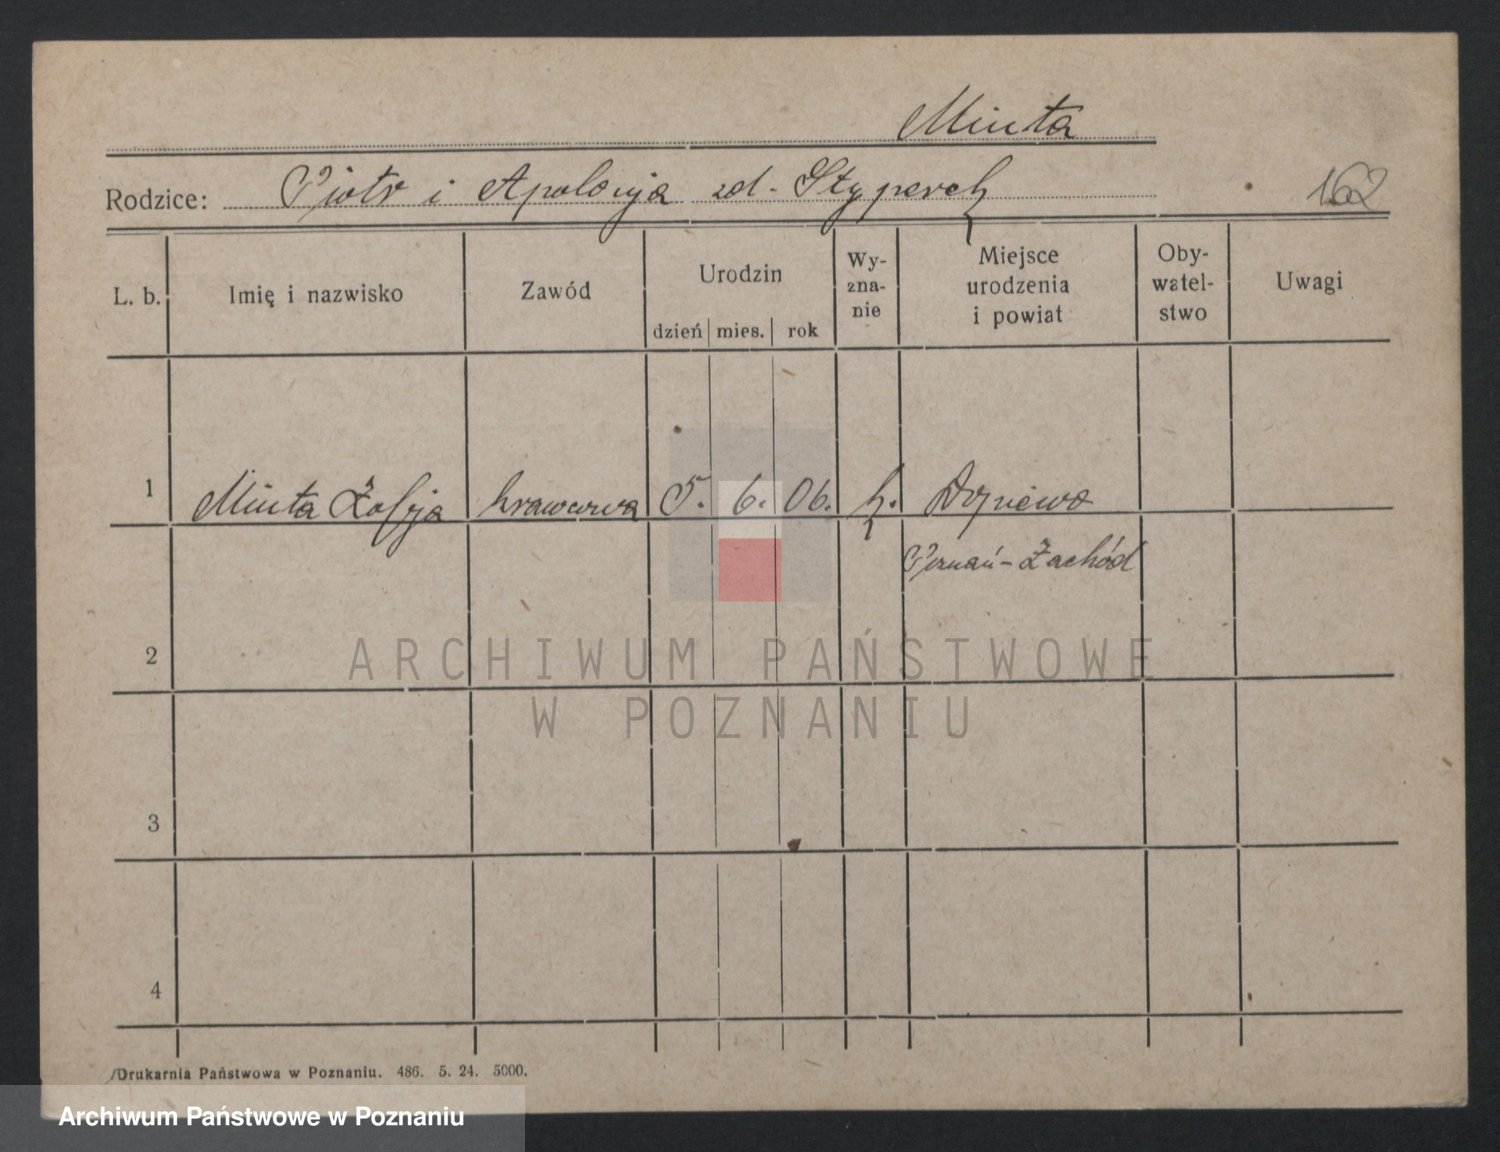 Miuta
Rodzice: Piotr i Apolonja zd. Styperek
162
L. b. Imię i nazwisko Zawód Urodzin dzień mies. rok Wy-zna-nie Miejsce urodzenia i powiat Oby-watel-stwo Uwagi
1 Miuta Zofja krawcowa 5. 6. 06. k. Dopiewo
Poznań-Zachód
2
3
4
Drukarnia Państwowa w Poznaniu. 486. 5. 24. 5000.
ARCHIWUM PAŃSTWOWE
W POZNANIU
Archiwum Państwowe w Poznaniu